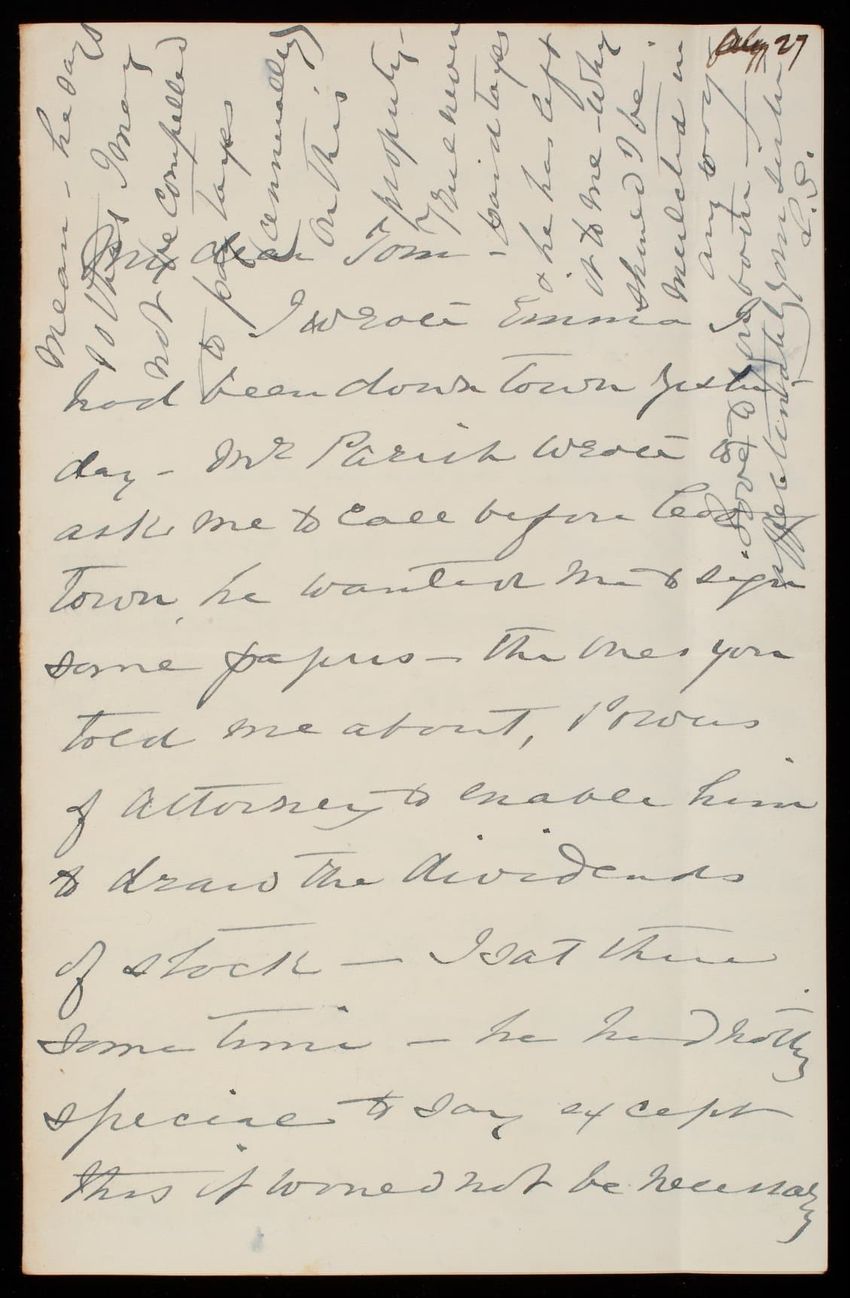 July 27
My dear Tom
I wrote Emma I
had been down town yester
day - Mr Parish wrote to
ask me to call before leaving
town, he wanted me to sign
some papers - the ones you
told me about, Powers
of Attorney to enable him
to draw the dividends
of stock - I sat there
some time - he had nothing
special to say except
this it would not be necessary
mean - he says
I may
not be compelled
to pay taxes
annually
on this
property -
never
paid taxes
& he has left
it to me - Why
should I be
mulcted in
any way
Love to you both -
Affectionately your sister
L. S.